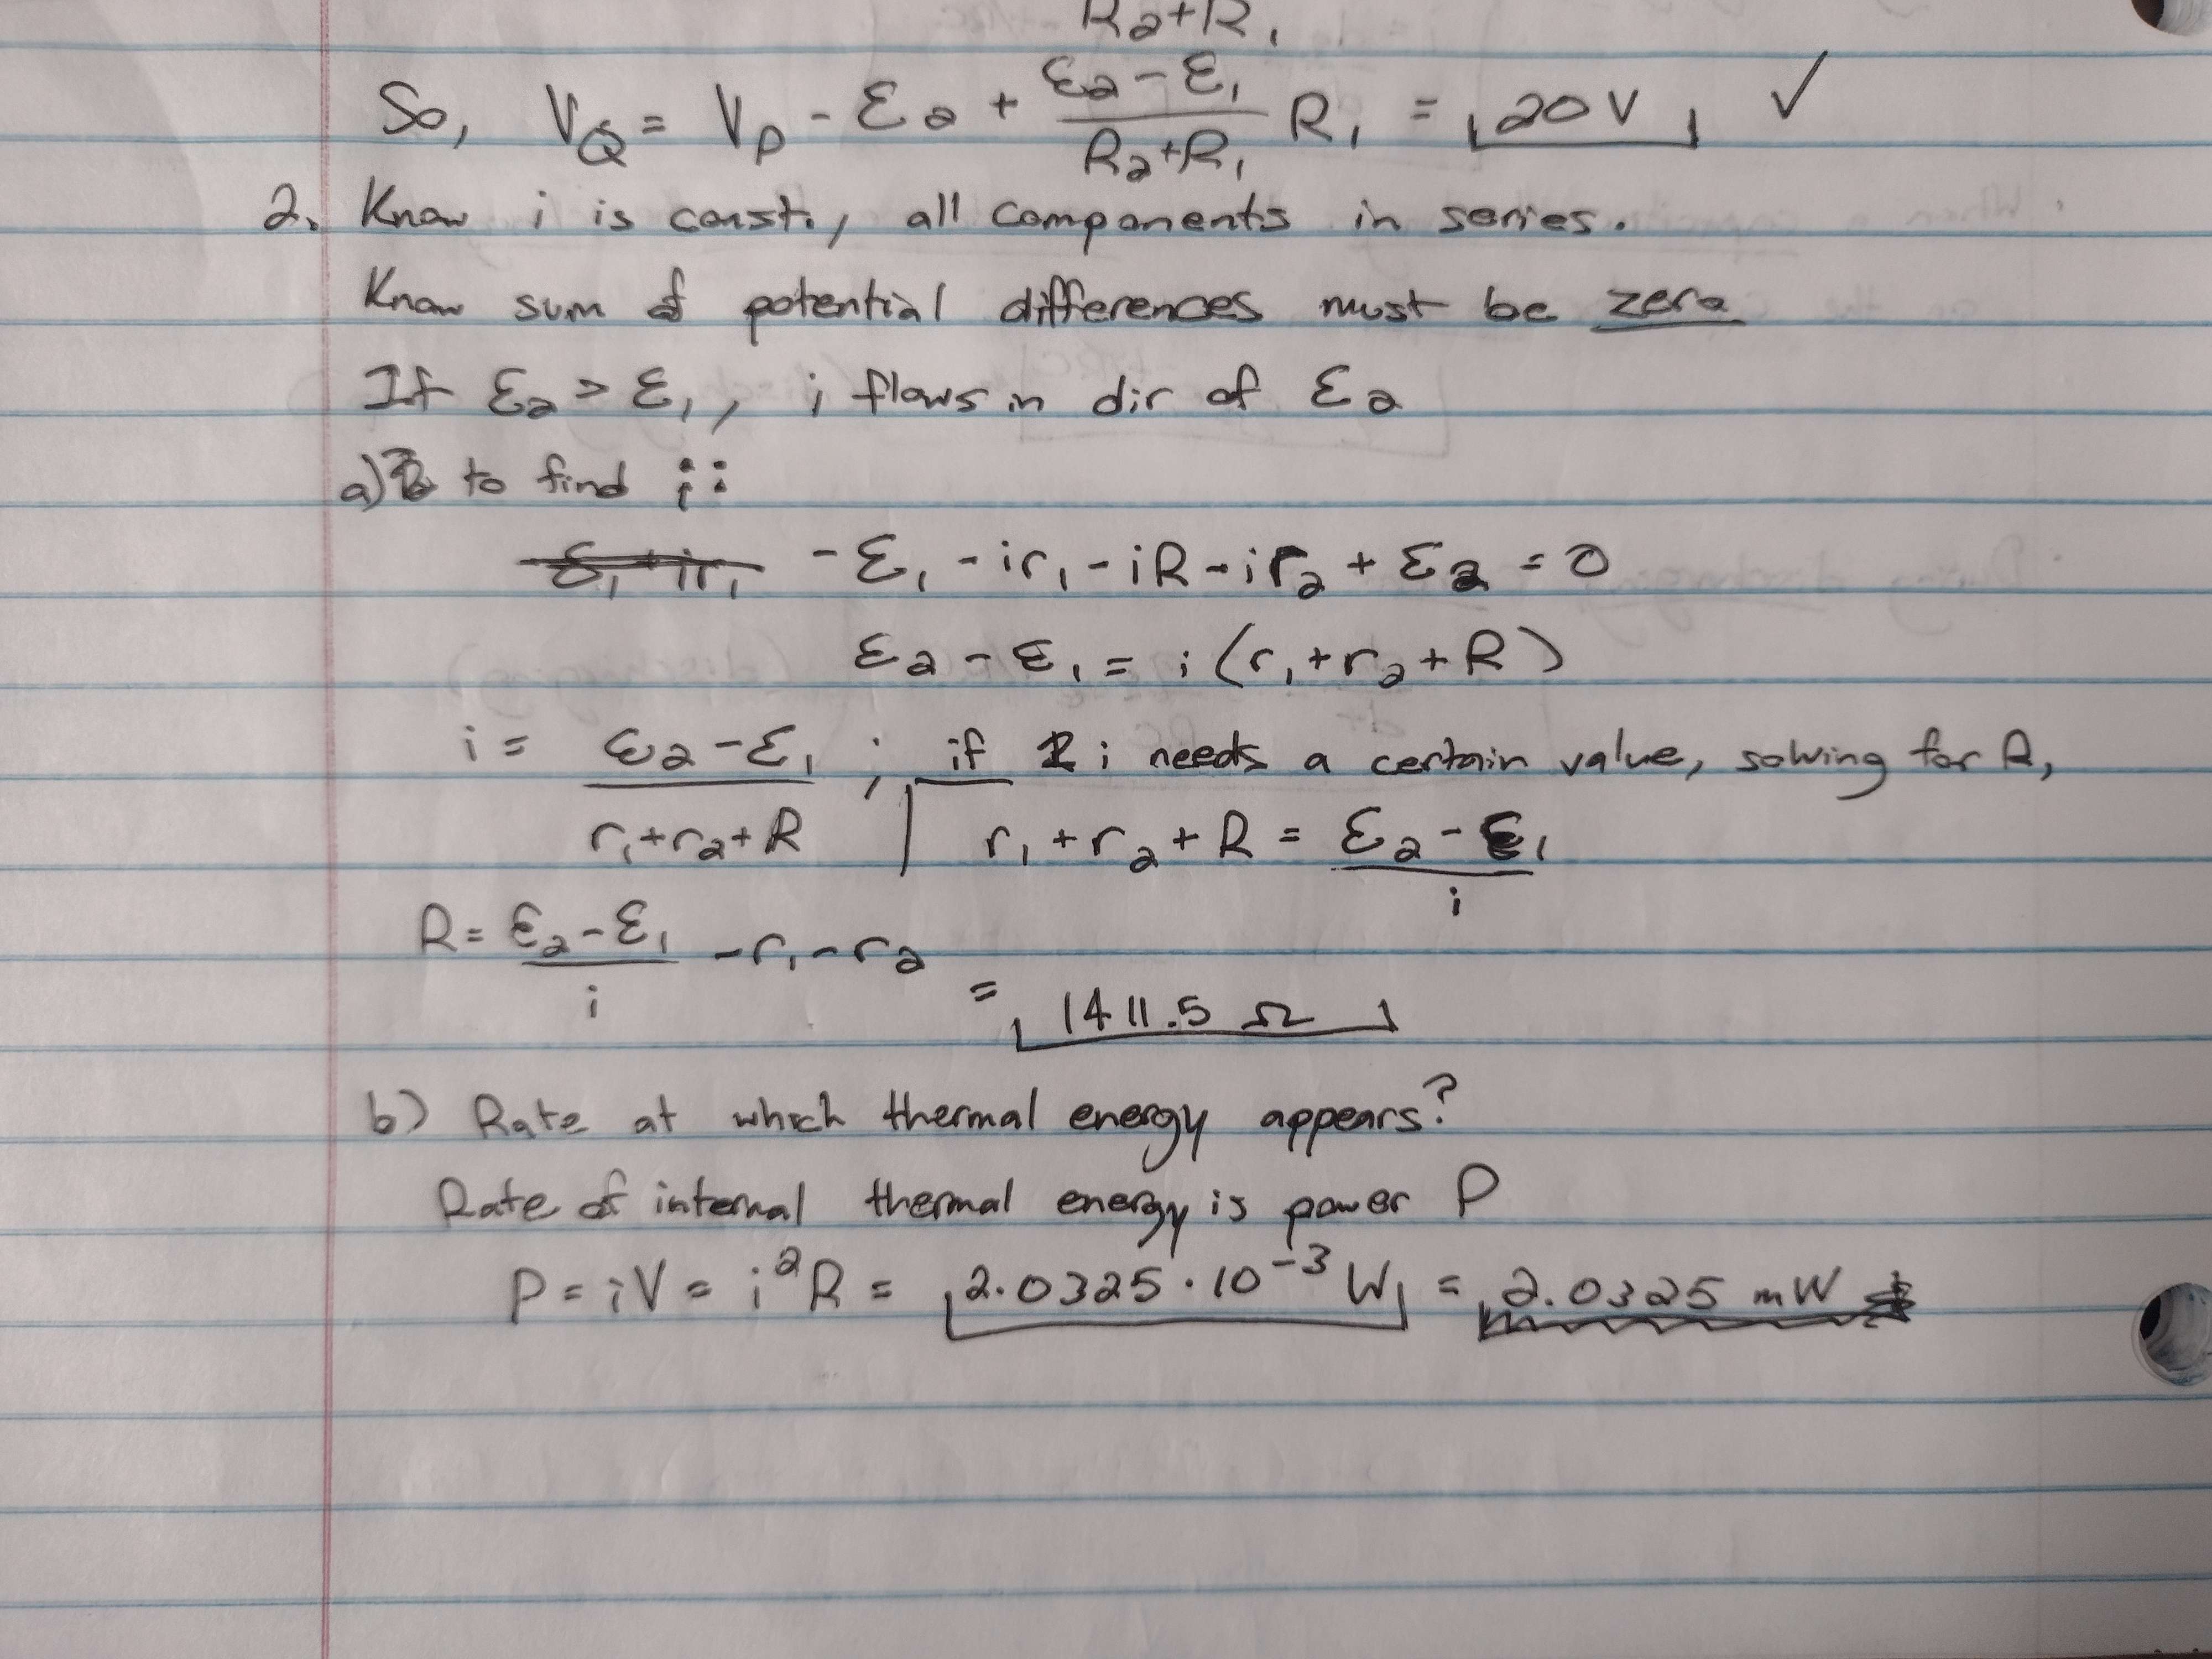 R₂+R₁
So, V_Q = V_P - ε₂ + (ε₂-ε₁)/(R₂+R₁) R₁ = 20 V ✓
2. Know i is const., all components in series.
Know sum of potential differences must be zero
If ε₂ > ε₁, i flows in dir of ε₂
a) to find i:
-ε₁ - ir₁ - iR - ir₂ + ε₂ = 0
ε₂ - ε₁ = i (r₁+r₂+R)
i = (ε₂-ε₁)/(r₁+r₂+R) ; if i needs a certain value, solving for R,
r₁+r₂+R = (ε₂-ε₁)/i
R = (ε₂-ε₁)/i -r₁-r₂ = 1411.5 Ω
b) Rate at which thermal energy appears?
Rate of internal thermal energy is power P
P = iV = i²R = 2.0325·10⁻³ W = 2.0325 mW